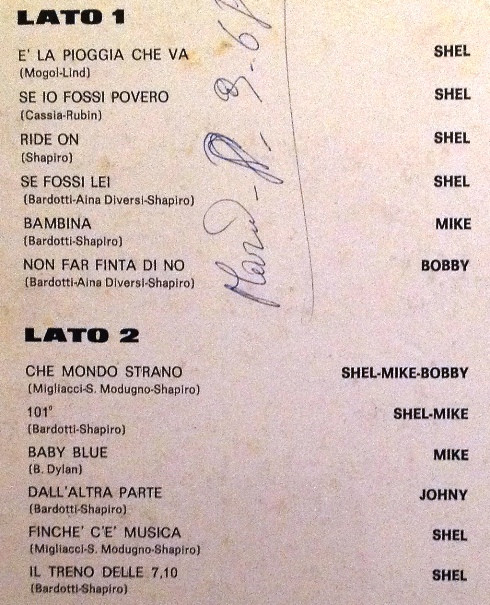 LATO 1
E' LA PIOGGIA CHE VA SHEL
(Mogol-Lind)
SE IO FOSSI POVERO SHEL
(Cassia-Rubin)
RIDE ON SHEL
(Shapiro)
SE FOSSI LEI SHEL
(Bardotti-Aina Diversi-Shapiro)
BAMBINA MIKE
(Bardotti-Shapiro)
NON FAR FINTA DI NO BOBBY
(Bardotti-Aina Diversi-Shapiro)
LATO 2
CHE MONDO STRANO SHEL-MIKE-BOBBY
(Migliacci-S. Modugno-Shapiro)
101° SHEL-MIKE
(Bardotti-Shapiro)
BABY BLUE MIKE
(B. Dylan)
DALL'ALTRA PARTE JOHNY
(Bardotti-Shapiro)
FINCHE' C'E' MUSICA SHEL
(Migliacci-S. Modugno-Shapiro)
IL TRENO DELLE 7,10 SHEL
(Bardotti-Shapiro)